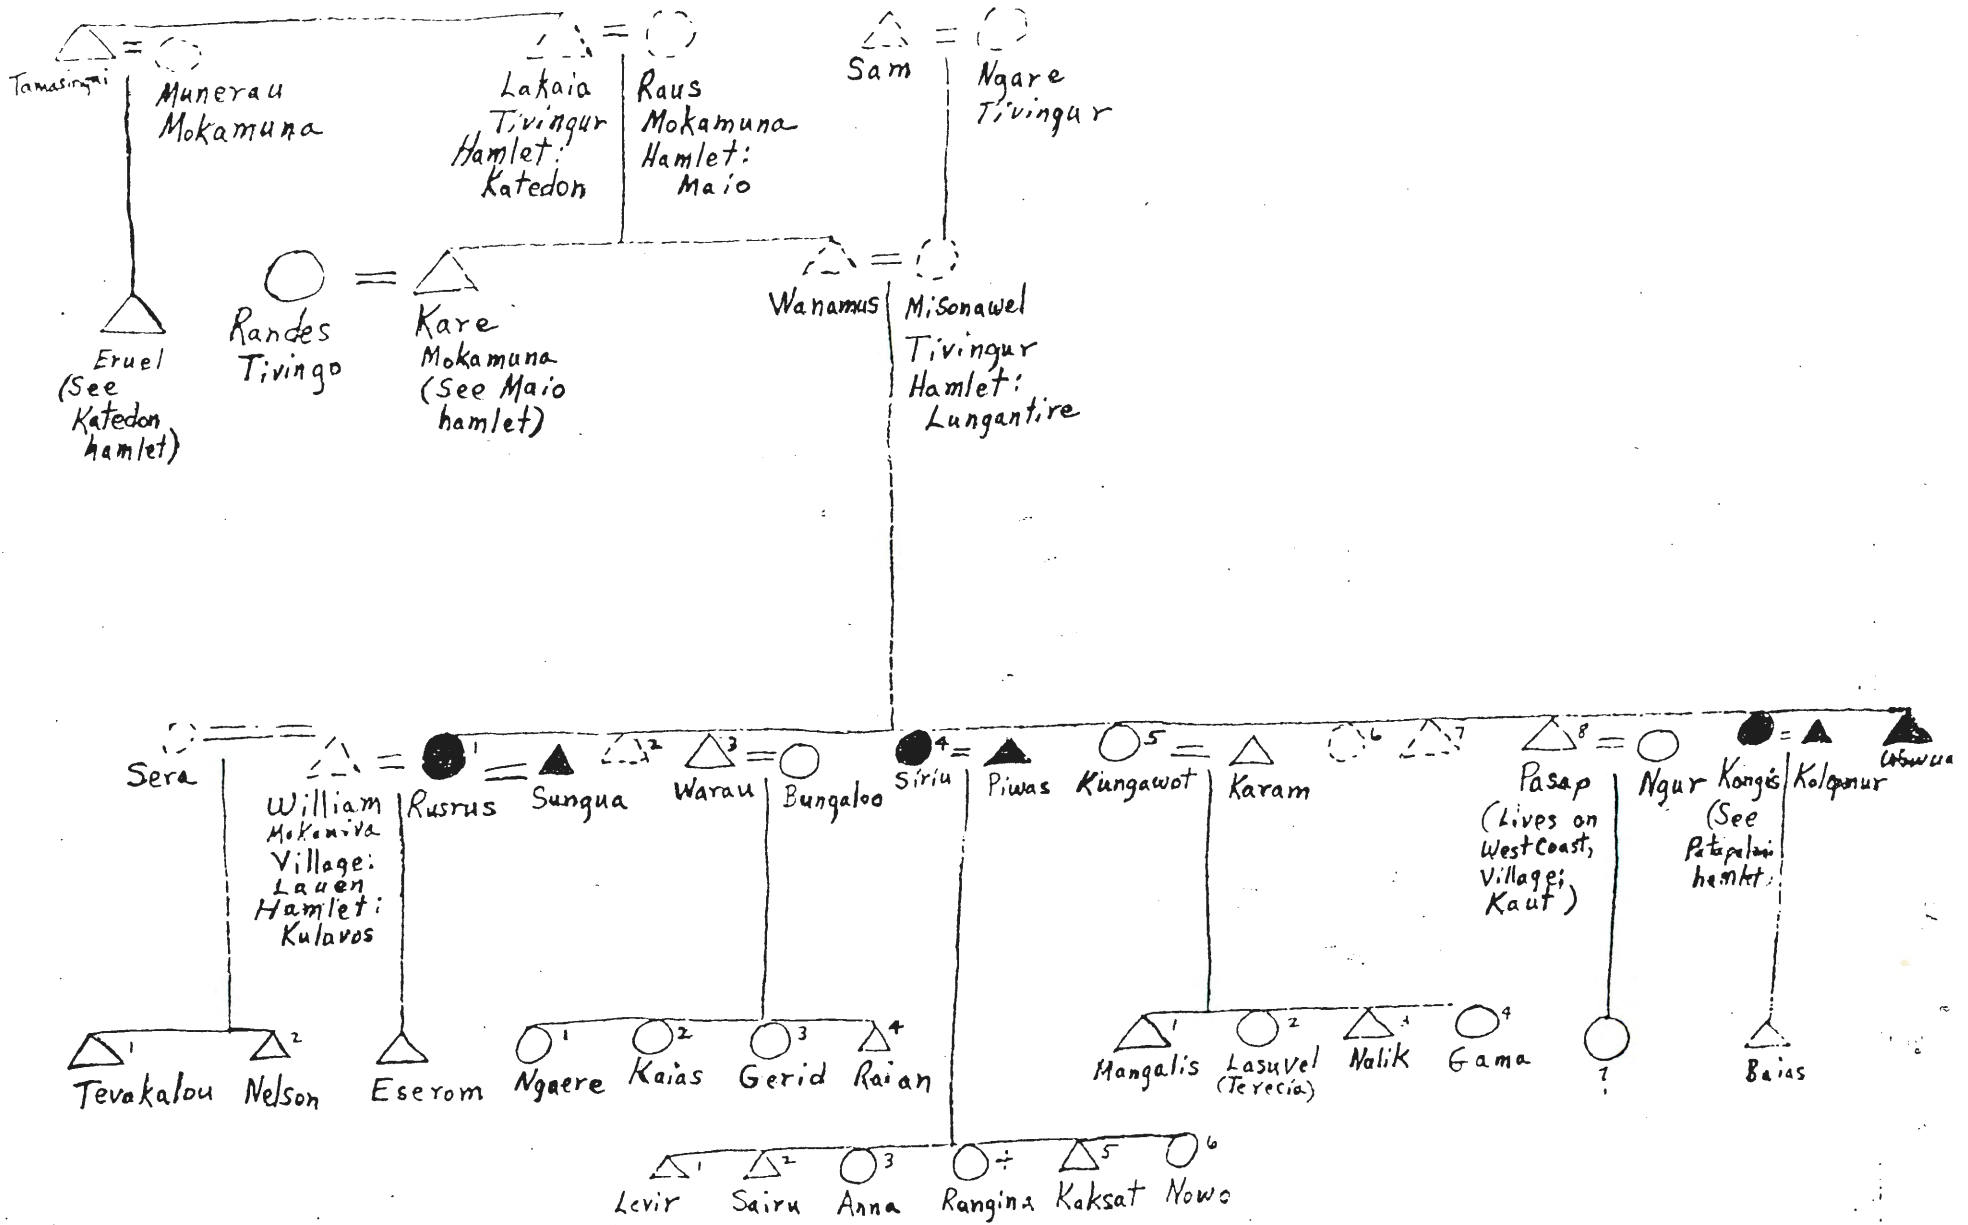 Munerau
Mokamuna
Lakaia
Tivingur
Hamlet:
Katedon
Raus
Mokamuna
Hamlet:
Maio
Sam
Ngare
Tivingur
Eruel
(See
Katedon
hamlet)
Randes
Tivingo
Kare
Mokamuna
(See Maio
hamlet)
Wanamus
Misonawel
Tivingur
Hamlet:
Lungantire
Sera
William
Village:
Lauen
Hamlet:
Kulavos
1
Rusrus
Sungua
2
3
Warau
Bungaloo
4
Siriu
Piwas
5
Kungawot
Karam
6
7
8
Pasap
(Lives on
West Coast,
Village:
Kaut)
Ngur
Kongis
(See
hamlet
1
Tevakalou
2
Nelson
Eserom
1
Ngaere
2
Kaias
3
Gerid
4
Raian
1
Mangalis
2
Lasuvel
(Terecia)
Nalik
4
Gama
?
Baias
1
Levir
2
Sairu
3
Anna
5
Kaksat
6
Nowo